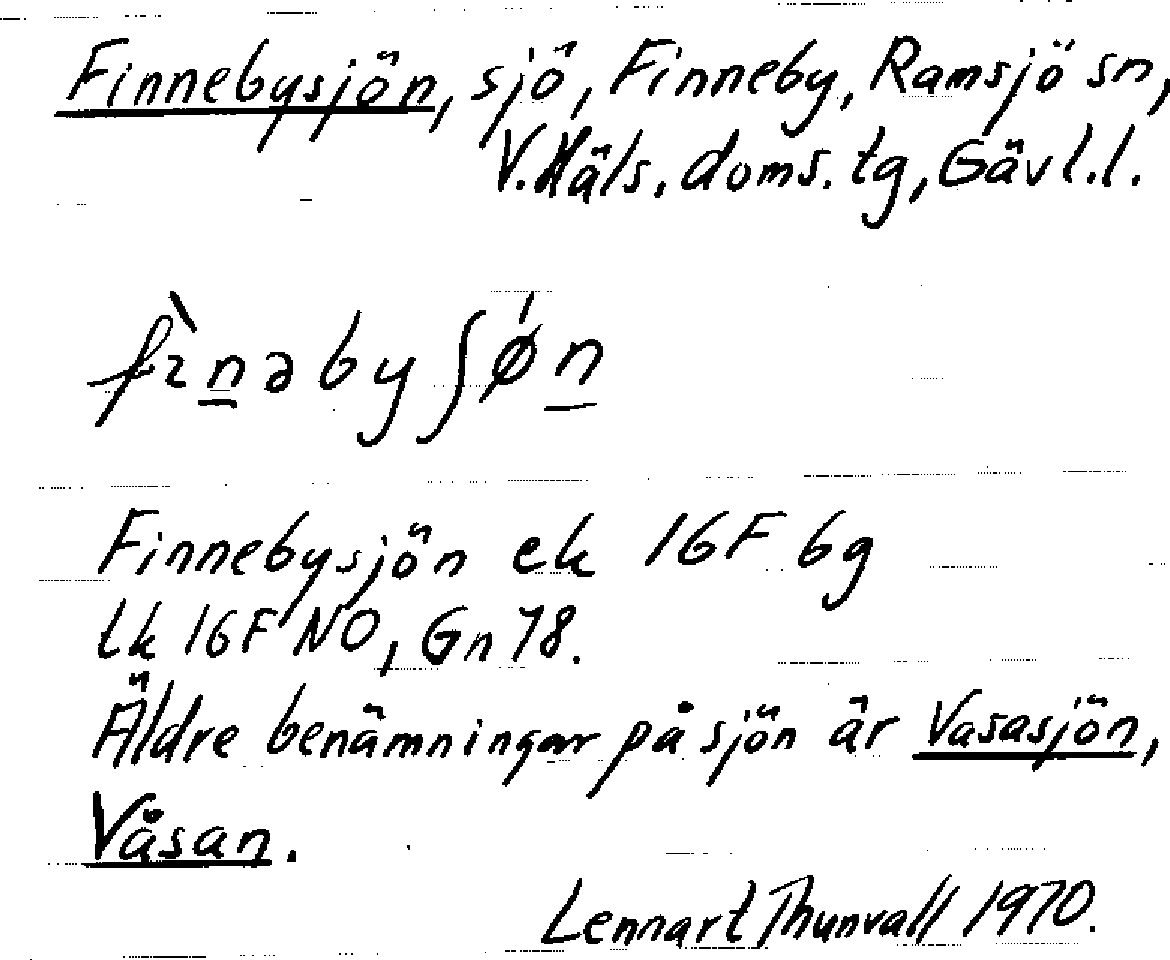 Finnebysjön, sjö, Finneby, Ramsjö sn,
V. Häls. doms. tg, Gävl. l.
fìn̲əbyʃǿn̲
Finnebysjön ek 16F 6g
tk 16F NO, Gn 78.
Äldre benämningar på sjön är Vasasjön,
Våsan.
Lennart Thunvall 1970.